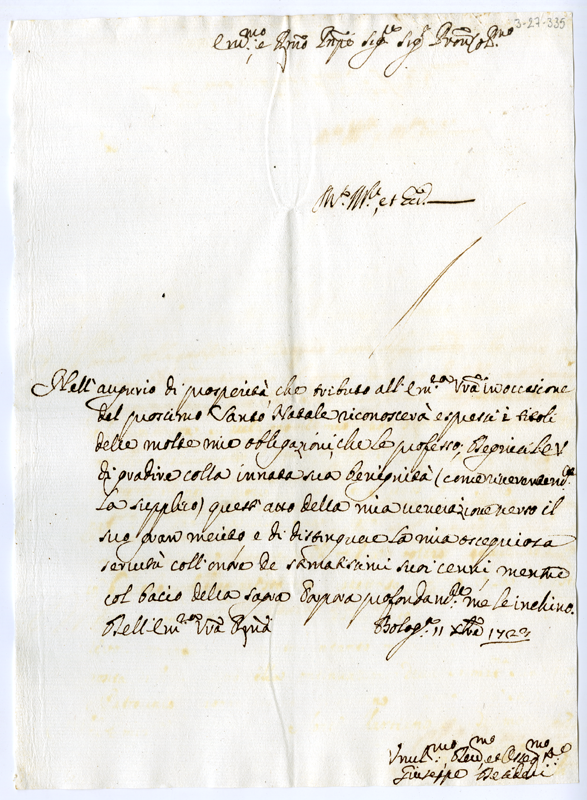 3-27-335
Em.mo e Rmo Pnpe Sig.r Sig.r Pron Col.mo
Nell'augurio di prosperità, che tributo all'Em.za Vrã in occasione
del prossimo Santo Natale riconoscerà espressi i titoli
delle molte mie obligazioni, che le professo. Si degni
di gradire colla innata sua benignità (come riverentem.te
la supplico) quest'atto della mia venerazione verso il
suo gran merito e di distinguere la mia ossequiosa
servitù coll'onore de stimatissimi suoi cenni mentre
col bacio della sagra Porpora profondam.te me le inchino.
Dell'Em.za Vrã Rmã Bolog.a 11 Xbre 1723
Vmil.mo Dev.mo et Osseq.mo
Giuseppe